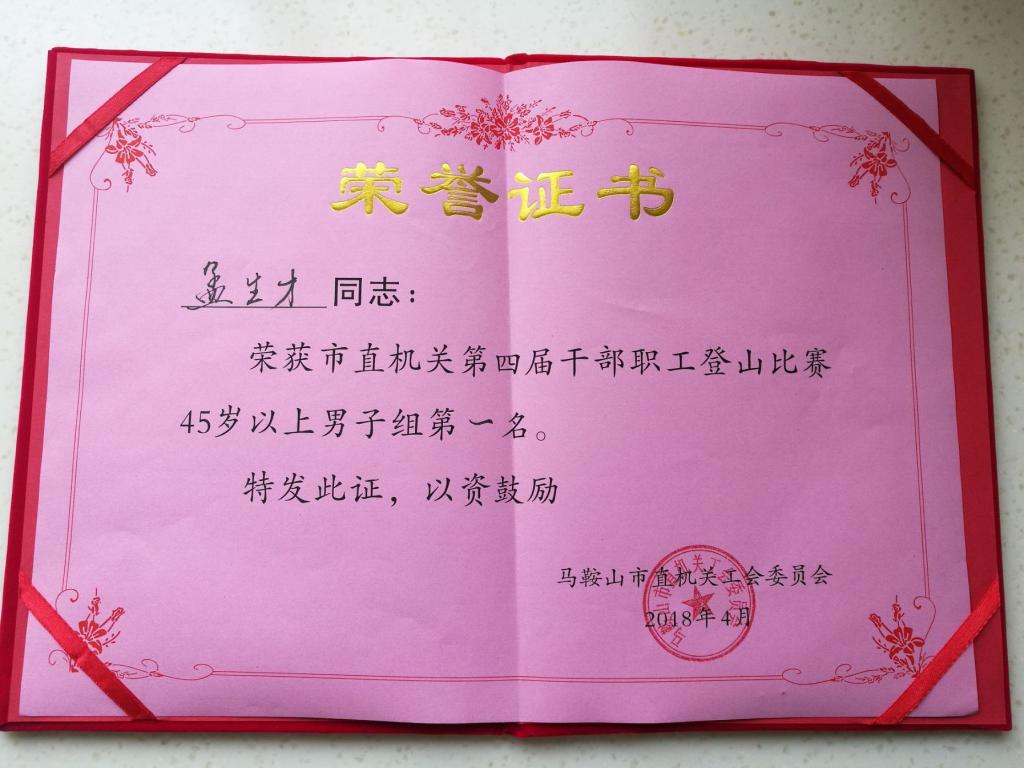 荣誉证书
孟生才 同志：
荣获市直机关第四届干部职工登山比赛
45岁以上男子组第一名。
特发此证，以资鼓励
马鞍山市直机关工会委员会
2018年4月
马鞍山市直机关工会委员会